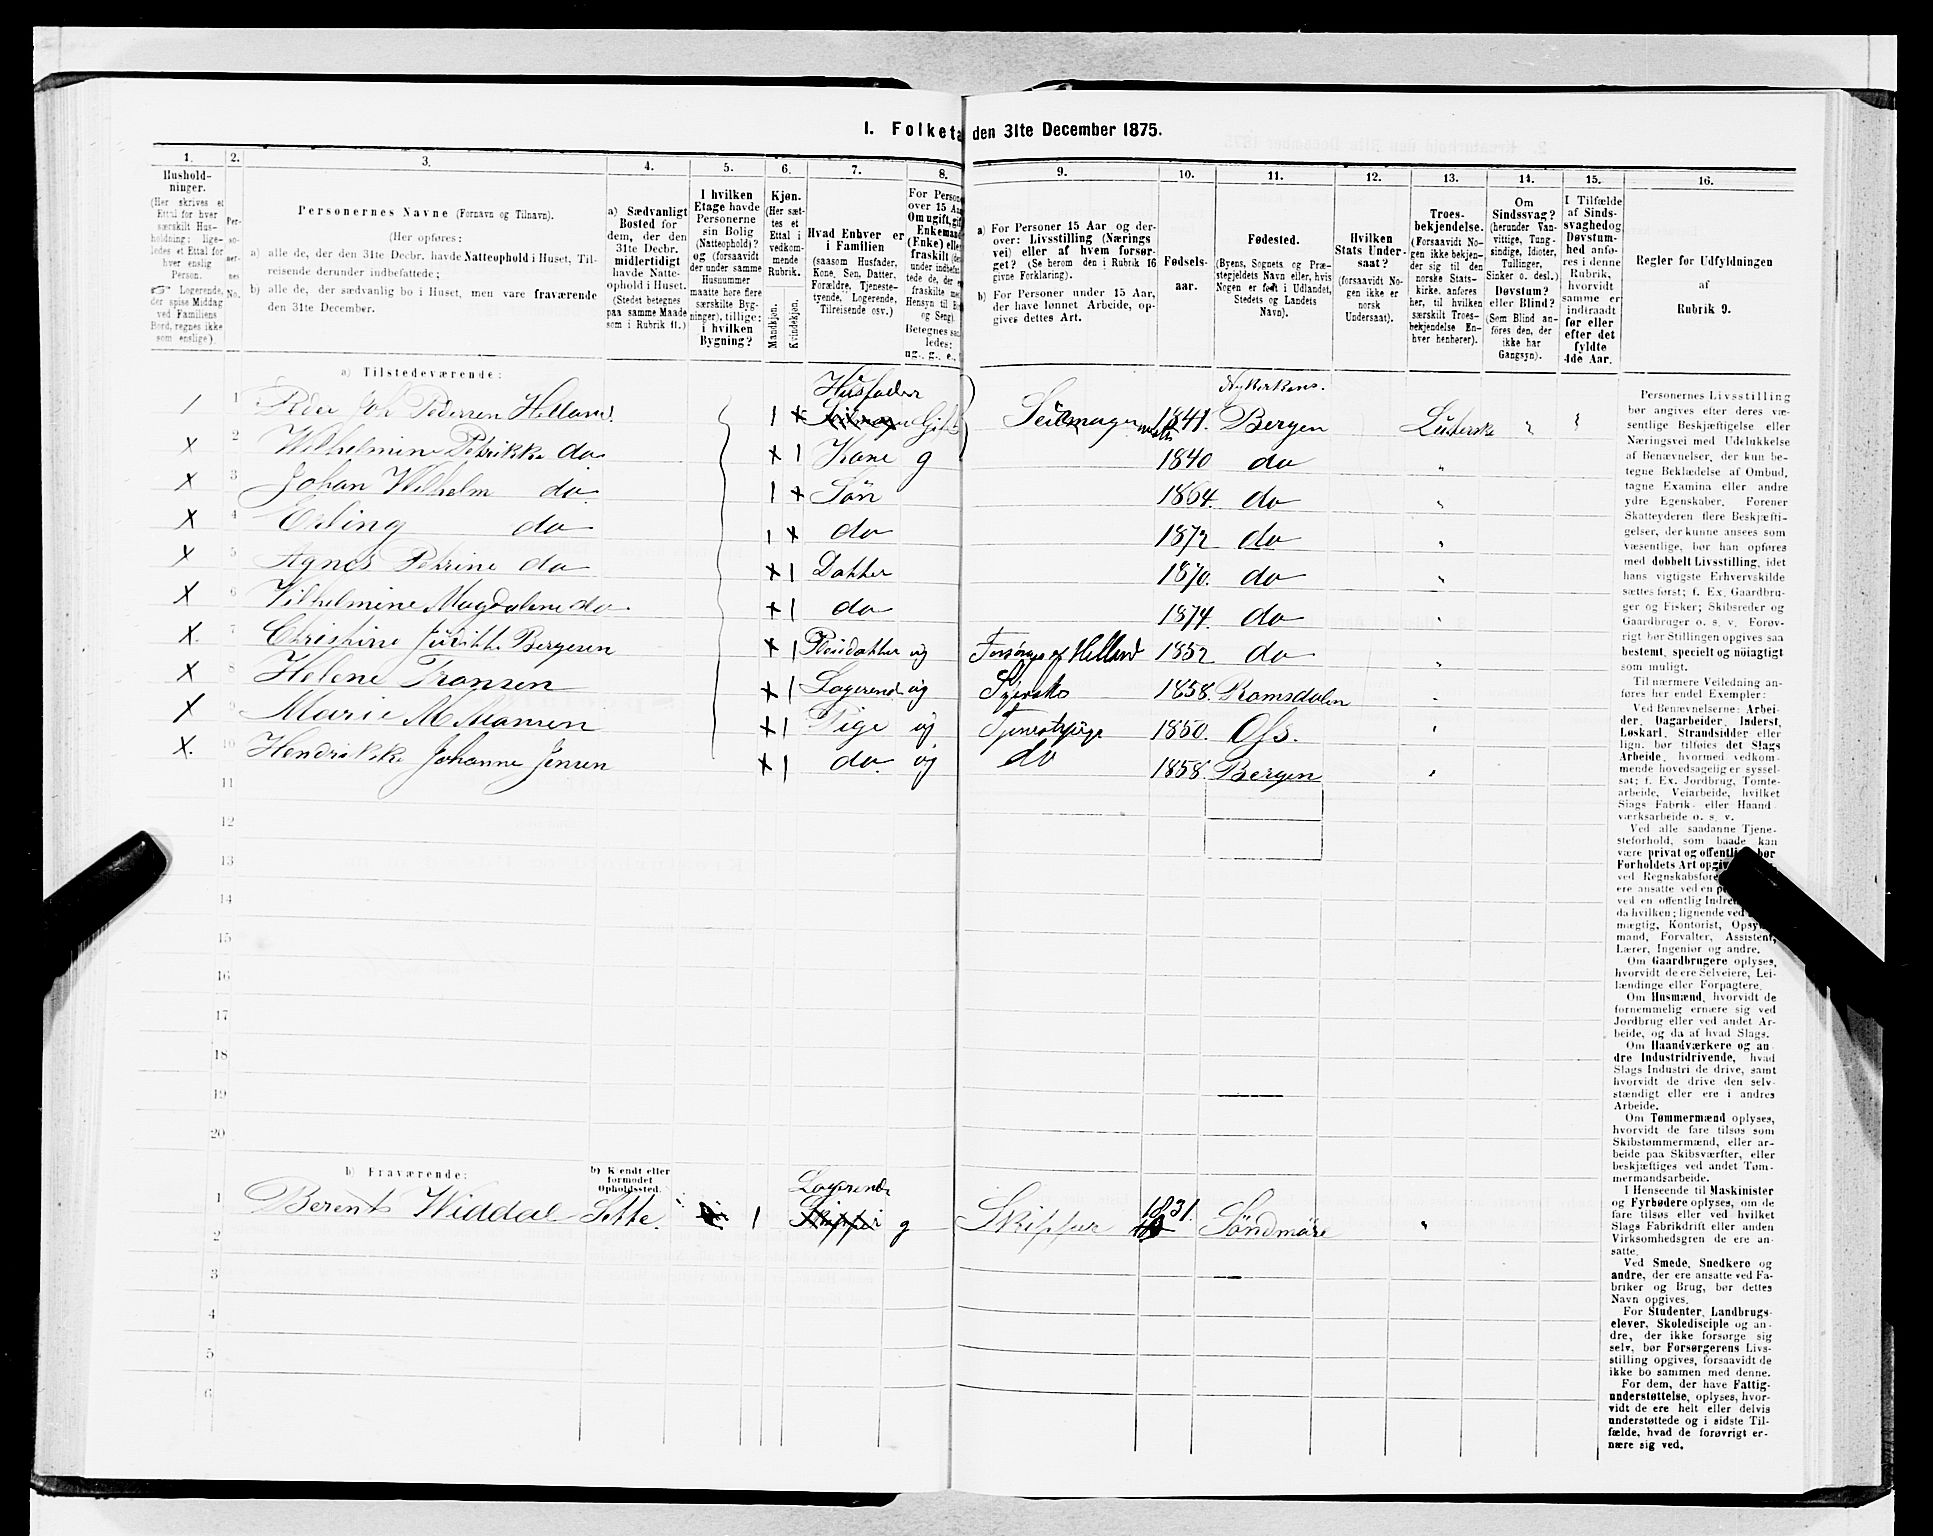 I. Folketa den 31te December 1875.
1. 2. 3. 4. 5. 6. 7. 8. 9. 10. 11. 12. 13. 14. 15. 16.
Hushold-
ninger.
(Her skrives et
Ettal for hver
særskilt Hus-
holdning; lige-
ledes et Ettal for
hver enslig
Person.
☞ Logerende,
der spise Middag
ved Familiens
Bord, regnes ikke
som enslige.)
Per-
so-
ner-
nes
No.
Personernes Navne (Fornavn og Tilnavn).
(Her opføres:
a) alle de, der den 31te Decbr. havde Natteophold i Huset, Til-
reisende derunder indbefattede;
b) alle de, der sædvanlig bo i Huset, men vare fraværende
den 31te December.
a) Sædvanligt
Bosted for
dem, der den
31te Decbr.
midlertidigt
havde Natte-
ophold i Huset.
(Stedet betegnes
paa samme Maade
som i Rubrik 11.)
I hvilken
Etage havde
Personerne
sin Bolig
(Natteophold)?
og (forsaavidt
der under samme
Husnummer
maatte høre flere
særskilte Byg-
ninger), tillige:
i hvilken
Bygning?
Kjøn.
(Her sæt-
tes et
Ettal i
vedkom-
mende
Rubrik.
Mandkjøn.
Kvindekjøn.
Hvad Enhver er
i Familien
(saasom Husfader,
Kone, Søn, Datter,
Forældre, Tjeneste-
tyende, Logerende,
Tilreisende osv.)
For Person
over 15 Aa
Om ugift, gif
Enkemand
(Enke) elle
fraskilt (de
under indbefat
tede de, der e
fraskilte med
Hensyn til B
og Seng).
Betegnes saa
ledes:
ug., g., e.,
a) For Personer 15 Aar og der-
over: Livsstilling (Nærings
vei) eller af hvem forsør-
get? (Se herom den i Rubrik 16
givne Forklaring).
b) For Personer under 15 Aar,
der have lønnet Arbeide, op-
gives dettes Art.
Fødsels-
aar.
Fødested.
(Byens, Sognets og Præ-
stegjeldets Navn eller, hvis
Nogen er født i Udlandet,
Stedets og Landets
Navn).
Hvilken
Stats Under-
saat?
(forsaavidt No-
gen ikke er
norsk
Undersaat).
Troes-
bekjendelse.
(Forsaavidt No-
gen ikke bekjen-
der sig til den
norske Stats-
kirke, anføres
her, til hvilken
særskilt Troes-
bekjendelse En-
hver henhører).
Om
Sindssvag?
(herunder Van-
vittige, Tung-
sindige, Idioter,
Tullinger,
Sinker o. desl.)
Døvstum?
eller Blind?
(Som Blind an-
føres den, der
ikke har
Gangsyn).
I Tilfælde
af Sinds-
svaghed og
Døvstum-
hed anfø-
res i denne
Rubrik,
hvorvidt
samme er
indtraadt
før eller
efter det
fyldte
4de Aar.
Regler for Udfyldningen
af
Rubrik 9.
a) Tilstedeværende:
Husfader Nykirkens.
1 1 Peder Joh Pedersen Helland 1 x Gift Seilmager 1841. Bergen Lutherske " "
x 2 Wilhelmine Petrikke do x 1 Kone g 1840 do "
x 3 Johan Wilhelm do 1 x Søn 1864. do "
x 4 Erling do 1 x do 1872 do "
x 5 Agnes Petrine do x 1 Datter 1870. do "
x 6 Vilhelmine Magdalene do x 1 do 1874. do "
x. 7 Christine Juditte Bergesen x 1 Pleiedatter ug Forsørges af Helland 1852 do "
x 8 Helene Transen x 1 Logerend ug Syerske 1858. Romsdalen "
x 9 Marie M Mansen x 1 Pige ug Tjenestepige 1850. Oss. "
x. 10 Hendrikke Johanne Jensen x 1 do. ug do 1858. Bergen "
11
12
13
14
15
16
17
18
19
20
b) Fraværende:
b) Kjendt eller
formodet
Opholdssted.
Logerende
1 Berent Widdal Sette. 1 Skipper g Skipper 1831. Søndmøre "
2
3
4
5
6
Personernes Livsstilling
bør angives efter deres væ-
sentlige Beskjæftigelse eller
Næringsvei med Udelukkelse
af Benævnelser, der kun be-
tegne Beklædelse af Ombud,
tagne Examina eller andre
ydre Egenskaber. Forener
Skatteyderen flere Beskjæfti-
gelser, der kunne ansees som
væsentlige, bør han opføres
med dobbelt Livsstilling, idet
hans vigtigste Erhvervskilde
sættes først; f. Ex. Gaardbru-
ger og Fisker; Skibsreder og
Gaardbruger o. s. v. Forøv-
rigt bør Stillingen opgives saa
bestemt, specielt og nøiagtigt
som muligt.
Til nærmere Veiledning an-
føres her endel Exempler:
Ved Benævnelserne: Arbei-
der, Dagarbeider, Inderst,
Løskarl, Strandsidder eller
lign. bør tilføies det Slags
Arbeide, hvormed vedkom-
mende hovedsagelig er syssel-
sat; f. Ex. Jordbrug, Tømte-
arbeide, Veiarbeide, hvilket
Slags Fabrik- eller Haand-
værksarbeide o. s. v.
Ved alle saadanne Tjene-
steforhold, som baade kan
være privat og offentlig, bør
Forholdets Art opgiv
ved Regnskabsføre
ere ansatte ved en p
ved en offentlig Indre
da hvilken; lignende ved
mægtig, Kontorist, Opsy
mand, Forvalter, Assistent,
Lærer, Ingeniør og andre.
Om Gaardbrugere oplyses,
hvorvidt de ere Selveiere, Lei-
lændinge eller Forpagtere.
Om Husmænd, hvorvidt de
fornemmelig ernære sig ved
Jordbrug eller ved andet Ar-
beide, og da af hvad Slags.
Om Haandværkere og an-
dre Industridrivende, hvad
Slags Industri de drive, samt
hvorvidt de drive den selv-
stændigt eller ere i andres
Arbeide.
Om Tømmermænd oplyses,
hvorvidt de fare tilsøs som
Skibstømmermænd, eller ar-
beide paa Skibsværfter, eller
beskjæftiges ved andet Tøm-
mermandsarbeide.
I Henseende til Maskinister
og Fyrbødere oplyses, om de
fare tilsøs eller ved hvilket
Slags Fabrikdrift eller anden
Virksomhedsgren de ere an-
satte.
Ved Smede, Snedkere og
andre, der ere ansatte ved Fa-
briker og Brug, bør dettes
Navn opgives.
For Studenter, Landbrugs-
elever, Skoledisciple og an-
dre, der ikke forsørge sig
selv, bør Forsørgerens Livs-
stilling opgives, forsaavidt de
ikke bo sammen med denne.
For dem, der have Fattig-
understøttelse, oplyses, hvor-
vidt de ere helt eller delvis
understøttede og i sidste Til-
fælde, hvad de forøvrigt er-
nære sig ved.